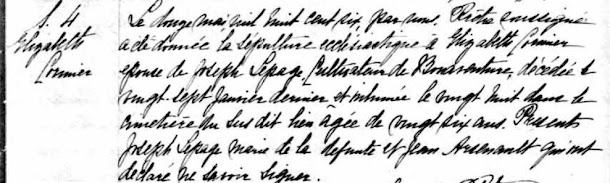 S. 4
Elizabeth
Cormier
Le douze mai, mil huit cent six par nous, Prêtre soussigné
a été donnée la sépulture ecclésiastique à Elizabeth Cormier
épouse de Joseph Lepage Cultivateur de Bonaventure, décédée le
vingt sept Janvier dernier et inhumée le vingt huit dans le
cimetière du sus dit lieu âgée de vingt six ans. Présents
Joseph Lepage marie de la defunte et Jean Arsenault qui ont
declaré ne savoir signer.